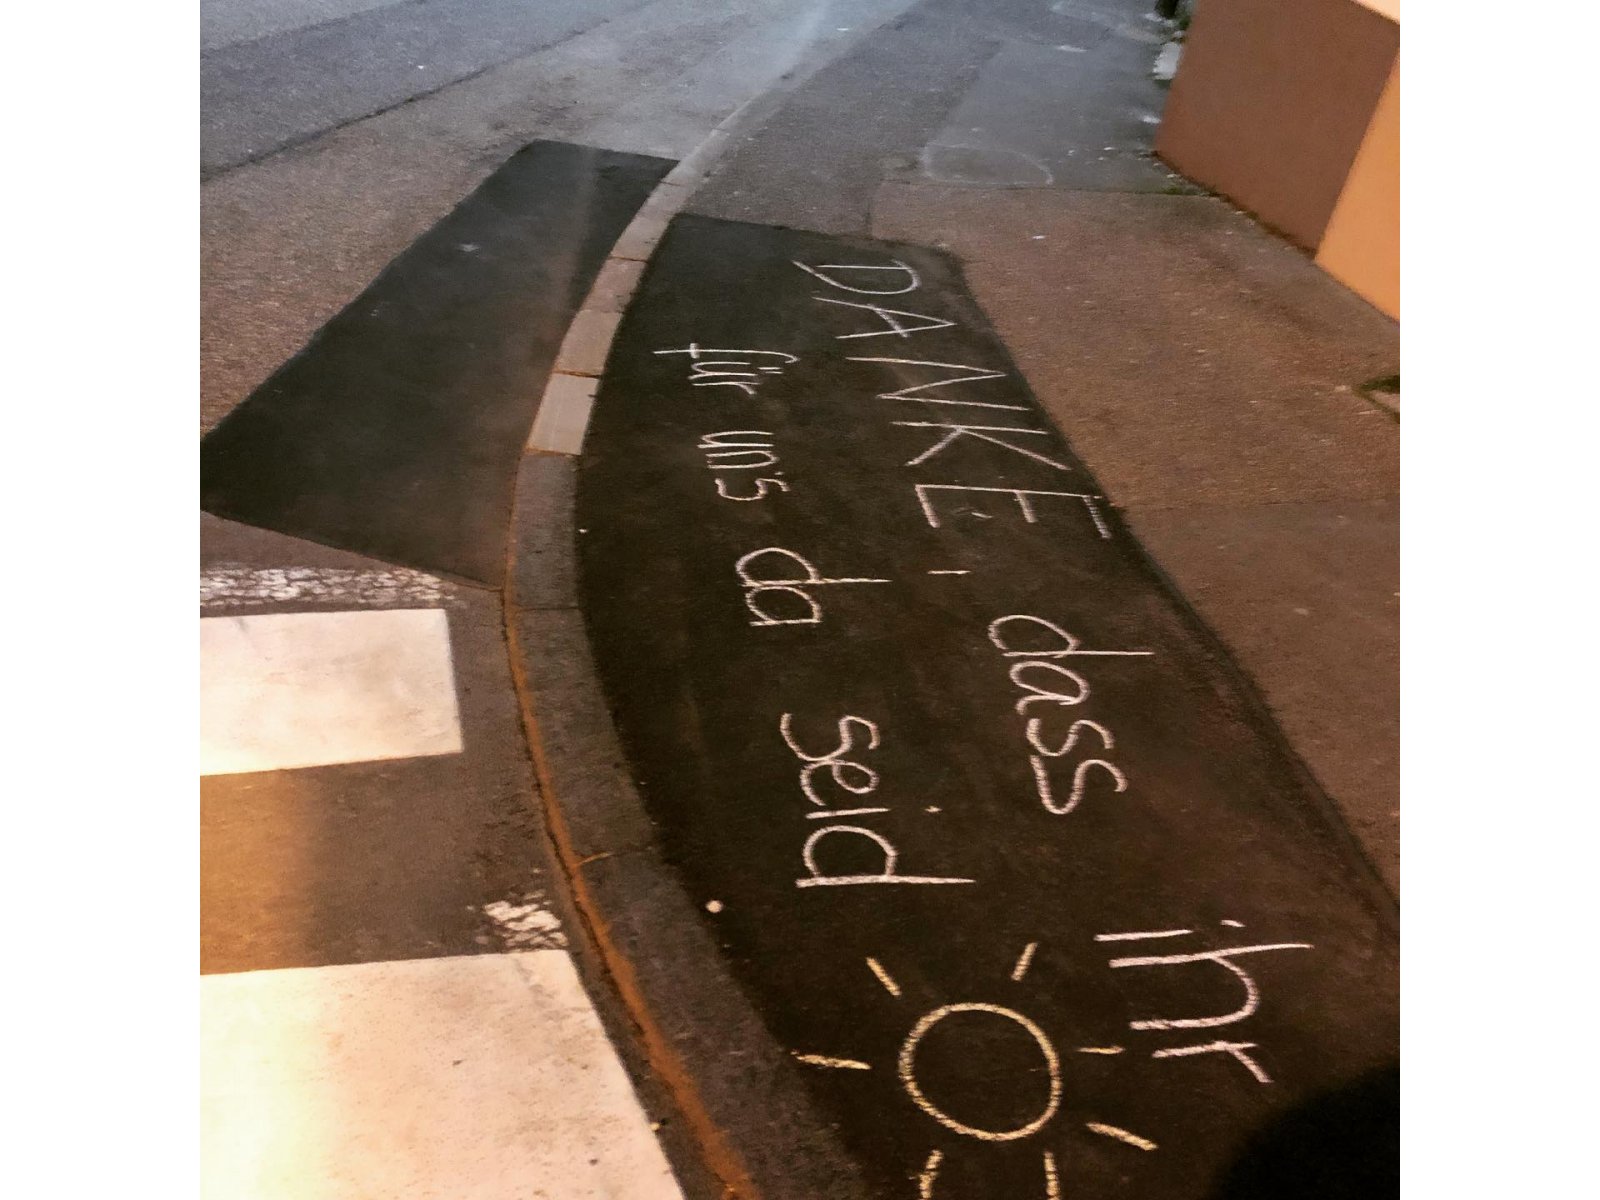 DANKE, dass ihr
für uns da seid